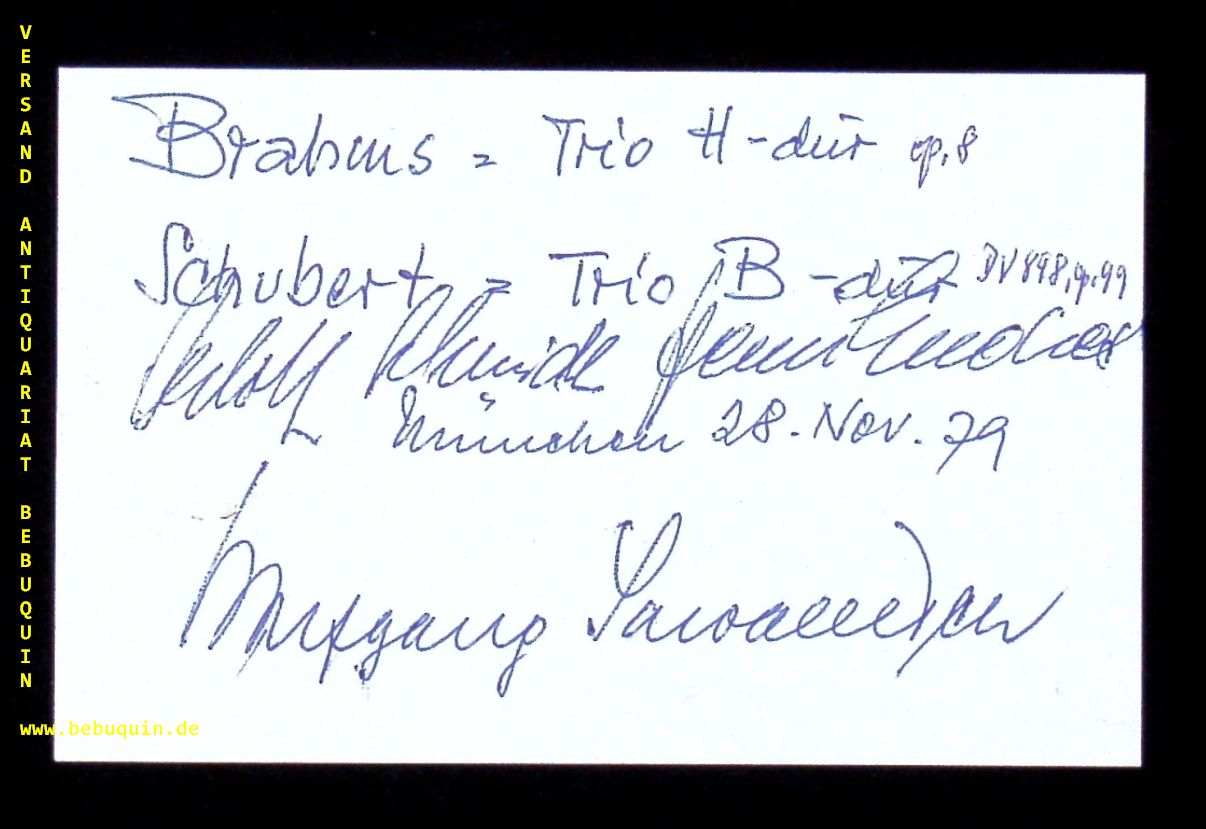 VERSAND ANTIQUARIAT BEBUQUIN
Brahms = Trio H-dur op. 8
Schubert = Trio B-dur DV 898, op. 99
München 28. Nov. 79
Wolfgang Sawallisch
www.bebuquin.de